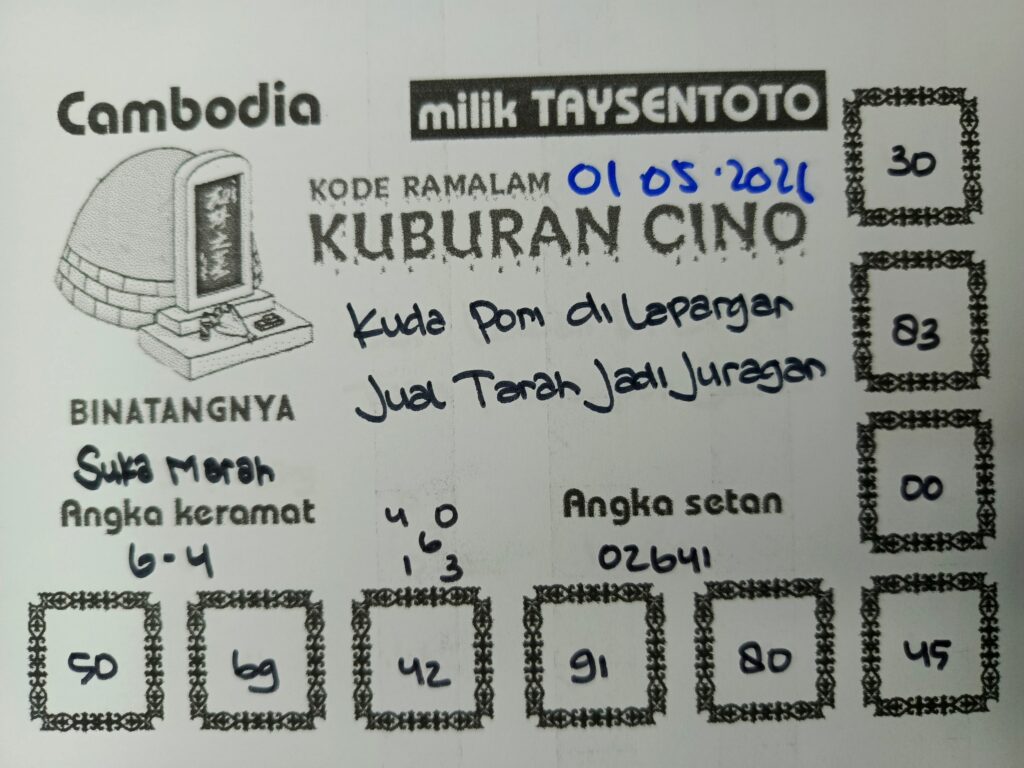 Cambodia
milik TAYSENTOTO
KODE RAMALAM 01 05 .2026
KUBURAN CINO
Kuda Pom di Lapangan
Jual Tarah Jadi Juragan
BINATANGNYA
Suka Marah
Angka keramat
6-4
4 0
6
1 3
Angka setan
02641
30
83
00
45
50
69
42
91
80